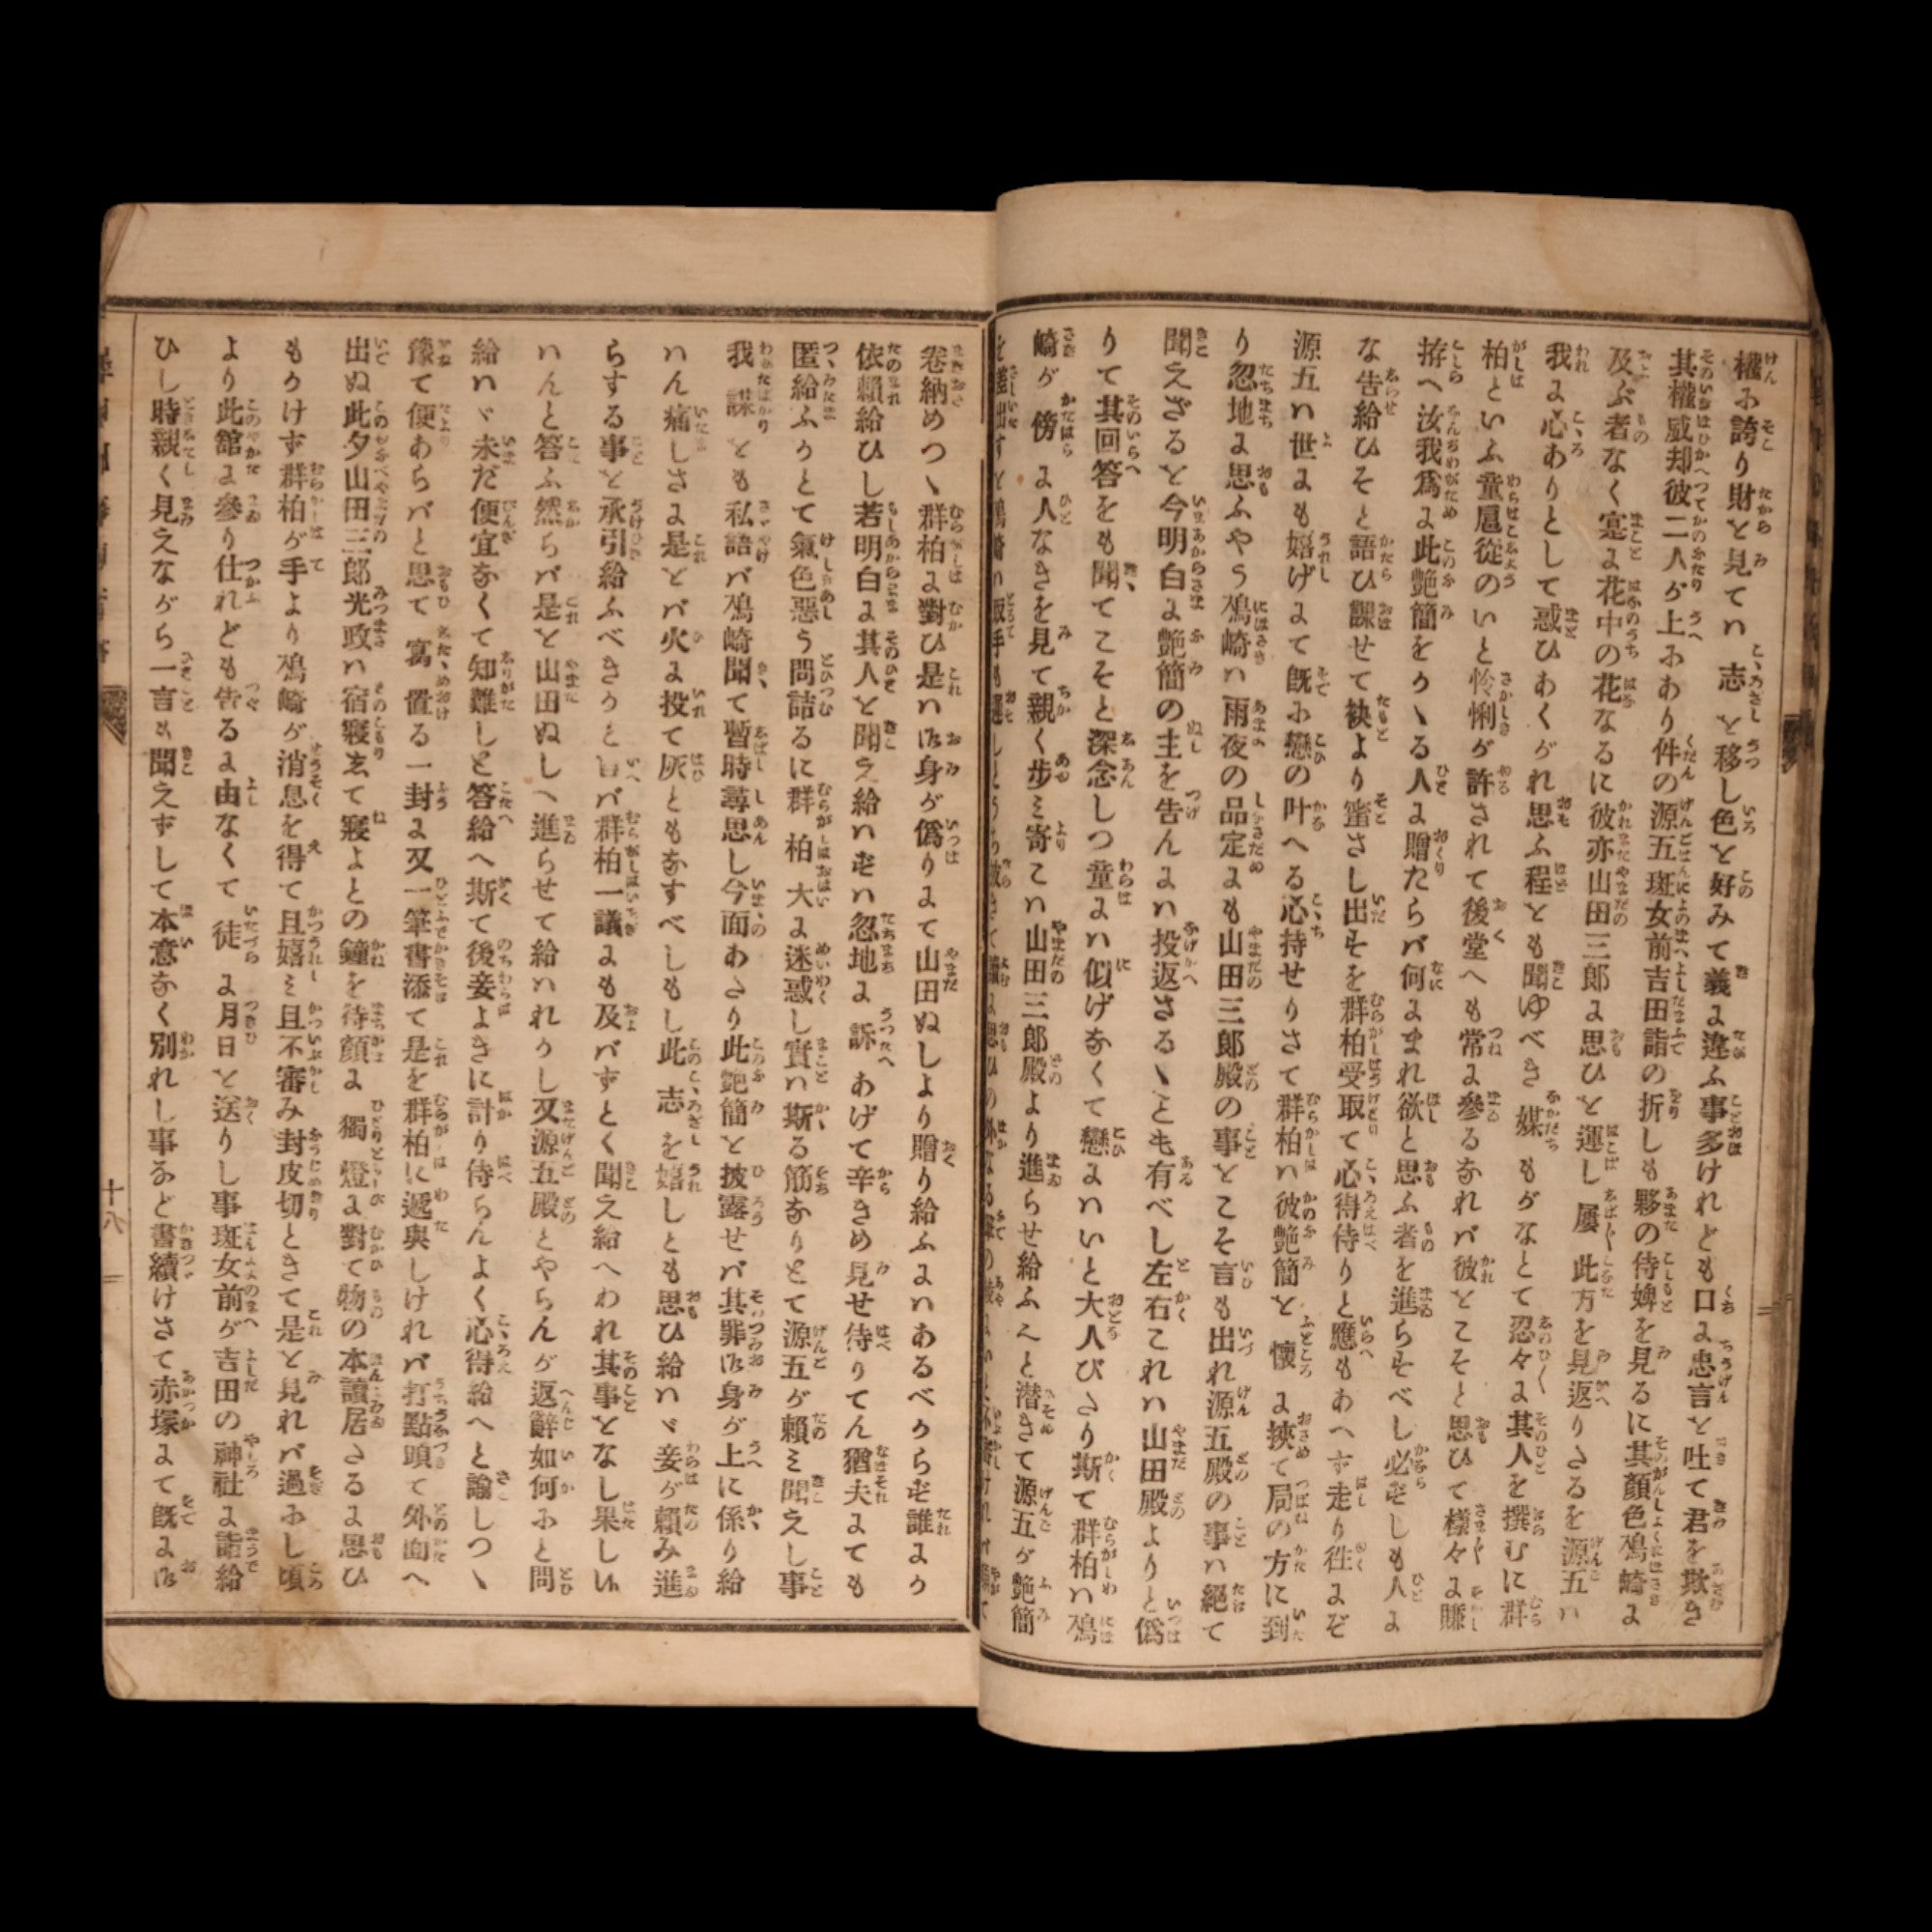 權に誇り財を見てハ志を移し色を好みて義に違ふ事多けれども口に忠言を吐て君を欺き
其權威却彼二人が上にあり件の源五斑女前吉田詣の折しも夥の侍婢を見るに其顏色鳰崎に
及ぶ者なく寔に花中の花なるに彼亦山田三郎に思ひを運し屢此方を見返りさるを源五ハ
我に心ありとして惑ひあくがれ思ふ程をも聞ゆべき媒もがなとて忍々に其人を撰むに群
柏といふ童扈從のいと怜悧が許されて後堂へも常に參るなれバ彼をこそと思ひて樣々に賺
拵へ汝我爲に此艶簡をかゝる人に贈たらバ何にまれ欲と思ふ者を進らすべし必ずしも人に
な告給ひそと語ひ課せて袂より蜜さし出すを群柏受取て心得侍りと應もあへず走り徃にぞ
源五ハ世にも嬉げにて既に戀の叶へる心持せりさて群柏ハ彼艶簡を懷に挾て局の方に到
り忽地に思ふやう鳰崎ハ雨夜の品定にも山田三郎殿の事をこそ言も出れ源五殿の事ハ絕て
聞えざるを今明白に艶簡の主を告んにハ投返さるゝとも有べし左右これハ山田殿よりと僞
りて其回答をも聞てこそと深念しつ童にハ似げなくて戀にハいと大人びたり斯て群柏ハ鳰
崎が傍に人なきを見て親く歩ミ寄こハ山田三郎殿より進らせ給ふ也と潜きて源五が艶簡
卷納めつゝ群柏に對ひ是ハ御身が僞りにて山田ぬしより贈り給ふにハあるべからず誰にか
依賴給ひし若明白に其人を聞え給ハずハ忽地に訴あげて辛きめ見せ侍りてん猶夫にても
匿給ふかとて氣色惡う問詰るに群柏大に迷惑し實ハ斯る筋なりとて源五が賴ミ聞えし事
我謀とも私語バ鳰崎聞て暫時尋思し今面あたり此艶簡を披露せバ其罪御身が上に係り給
ハん痛しさに是をバ火に投て灰ともなすべしもし此志を嬉しとも思ひ給ハヾ妾が賴み進
らする事を承引給ふべきかといへバ群柏一議にも及バずとく聞え給へわれ其事をなし果し侍
ハんと答ふ然らバ是を山田ぬしへ進らせて給ハれかし又源五殿とやらんが返辭如何にと問
給ハヾ未だ便宜なくて知難しと答給へ斯て後妾よきに計り侍らんよく心得給へと諭しつゝ
豫て便あらバと思て寫置る一封に又一筆書添て是を群柏に遞與しけれバ打點頭て外面へ
出ぬ此夕山田三郎光政ハ宿寢玄て寢よとの鐘を待顏に獨燈に對て物の本讀居たるに思ひ
もかけず群柏が手より鳰崎が消息を得て且嬉ミ且不審み封皮切ときて是を見れバ過にし頃
より此舘に參り仕れども告るに由なくて徒に月日を送りし事斑女前が吉田の神社に詣給
ひし時親く見えながら一言も聞えずして本意なく別れし事など書續けさて赤塚にて既に御
十八